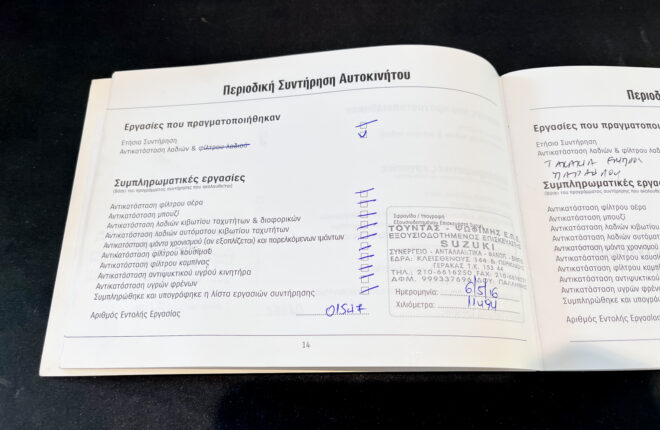 Περιοδική Συντήρηση Αυτοκινήτου
Εργασίες που πραγματοποιήθηκαν
Ετήσια Συντήρηση
Αντικατάσταση λαδιών & φίλτρου λαδιού
Συμπληρωματικές εργασίες
(βάσει του προγράμματος συντήρησης που ακολουθείται)
Αντικατάσταση φίλτρου αέρα
Αντικατάσταση μπουζί
Αντικατάσταση λαδιών κιβωτίου ταχυτήτων & διαφορικών
Αντικατάσταση λαδιών αυτόματου κιβωτίου ταχυτήτων
Αντικατάσταση ιμάντα χρονισμού (αν εξοπλίζεται) και παρελκόμενων ιμάντων
Αντικατάσταση φίλτρου καυσίμου
Αντικατάσταση φίλτρου καμπίνας
Αντικατάσταση αντιψυκτικού υγρού κινητήρα
Αντικατάσταση υγρών φρένων
Συμπληρώθηκε και υπογράφηκε η λίστα εργασιών συντήρησης
Αριθμός Εντολής Εργασίας 01547
Σφραγίδα / Υπογραφή
Εξουσιοδοτημένου Επισκευαστή Suzuki
ΤΟΥΝΤΑΣ - ΨΩΦΙΜΗΣ Ε.Π.Ε.
ΕΞΟΥΣΙΟΔΟΤΗΜΕΝΟΣ ΕΠΙΣΚΕΥΑΣΤΗΣ
SUZUKI
ΣΥΝΕΡΓΕΙΟ - ΑΝΤΑΛΛΑΚΤΙΚΑ
ΕΔΡΑ: ΚΛΕΙΣΘΕΝΟΥΣ 144 &
ΓΕΡΑΚΑΣ Τ.Κ. 153 44
ΤΗΛ.: 210-6616250 FAX: 210-
Α.Φ.Μ. 999337694 ΔΟΥ: ΠΑΛΛΗΝΗΣ
Ημερομηνία: 6/5/16
Χιλιόμετρα: 11494
14
Περιοδ
Εργασίες που πραγματοποι
Ετήσια Συντήρηση
Αντικατάσταση λαδιών & φίλτρου λαδιο
Συμπληρωματικές εργα
(βάσει του προγράμματος συντήρησης που ακολουθεί
Αντικατάσταση φίλτρου αέρα
Αντικατάσταση μπουζί
Αντικατάσταση λαδιών κιβωτίου ταχυ
Αντικατάσταση λαδιών αυτόματου κι
Αντικατάσταση ιμάντα χρονισμού (α
Αντικατάσταση φίλτρου καυσίμ
Αντικατάσταση φίλτρου καμπίνας
Αντικατάσταση αντιψυκτικού υγρο
Αντικατάσταση υγρών φρένων
Συμπληρώθηκε και υπογράφηκε
Αριθμός Εντολής Εργασίας